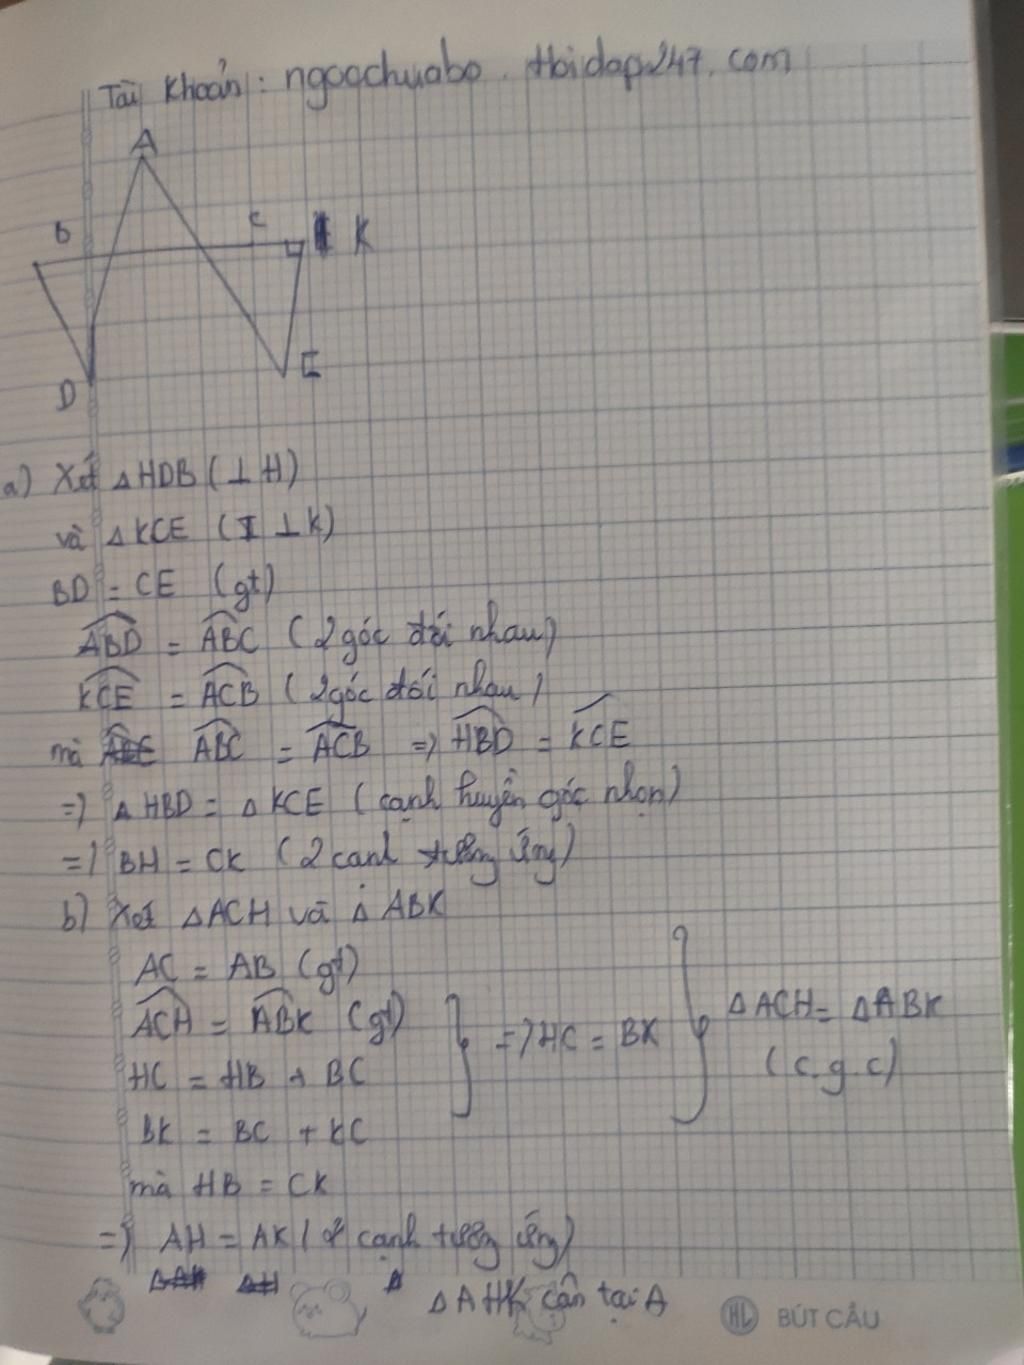 Tài khoản: ngocchuabo. Hoidap247.com
A
B
C
K
D
E
a) Xét △HDB (⊥H)
và △KCE (⊥K)
BD = CE (gt)
ABD = ABC (2 góc đối nhau)
KCE = ACB (2 góc đối nhau)
mà ABC = ACB => HBD = KCE
=> △HBD = △KCE (cạnh huyền góc nhọn)
=> BH = CK (2 cạnh tương ứng)
b) Xét △ACH và △ABK
AC = AB (gt)
ACH = ABK (gt)
HC = HB + BC
=> HC = BK
△ACH = △ABK
(c.g.c)
BK = BC + KC
mà HB = CK
=> AH = AK (2 cạnh tương ứng)
△AHK cân tại A
HL BÚT CẦU